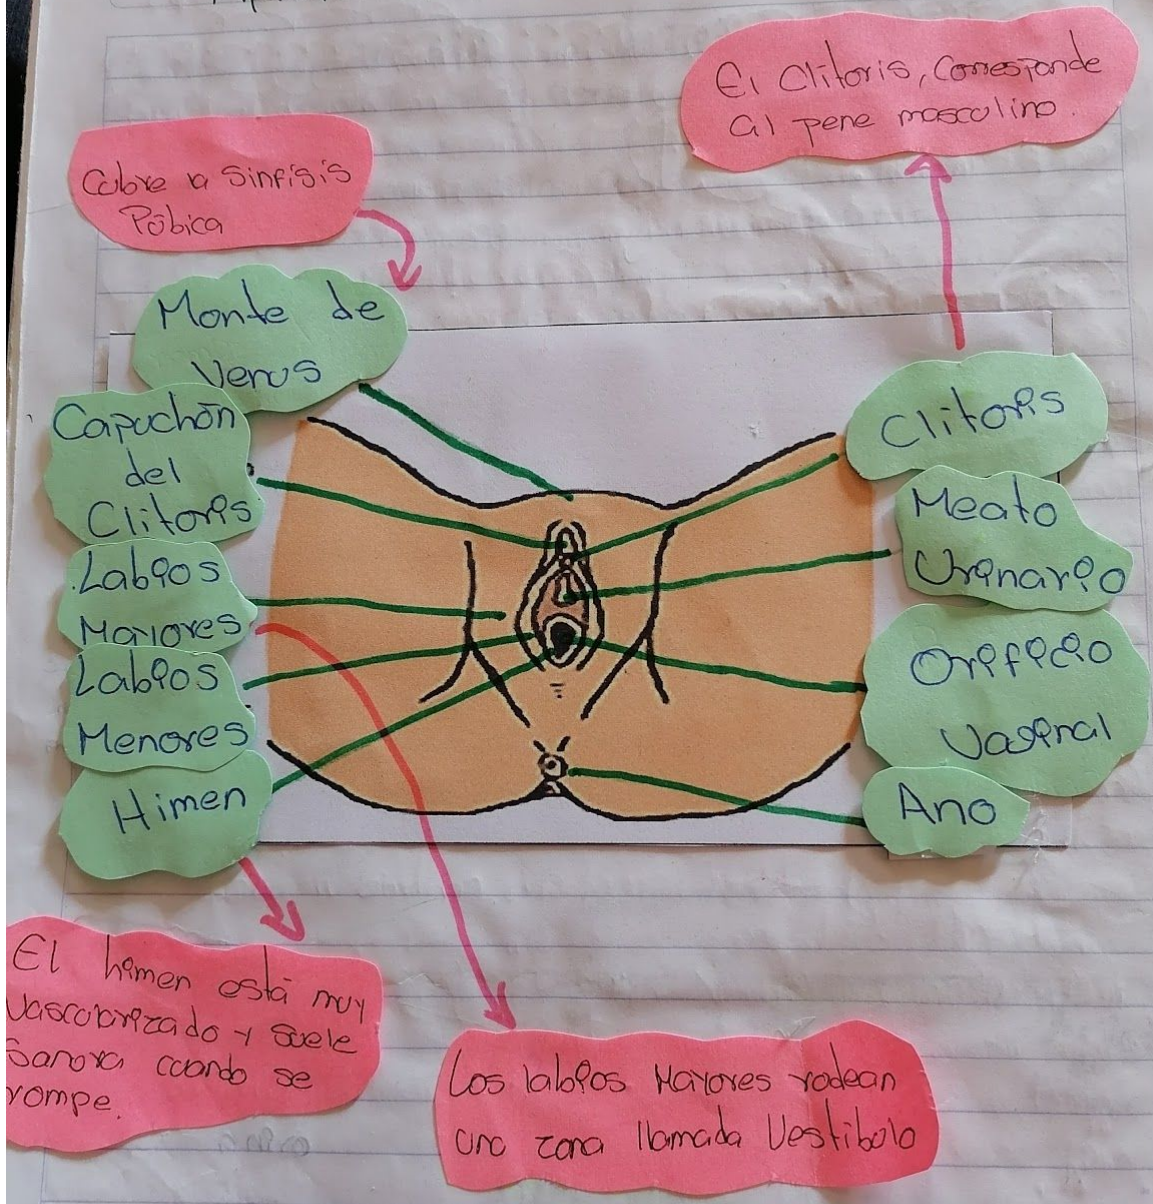 El Clitoris, Corresponde
al pene masculino.
Cubre a Sinfisis
Púbica
Monte de
Venus
Capuchón
del
Clitoris
Labios
Mayores
Labios
Menores
Himen
Clitoris
Meato
Urinario
Orificio
Vaginal
Ano
El himen está muy
Vascolarizado y suele
Sanora cuando se
rompe.
Los labios Mayores rodean
una zona llamada Vestibolo